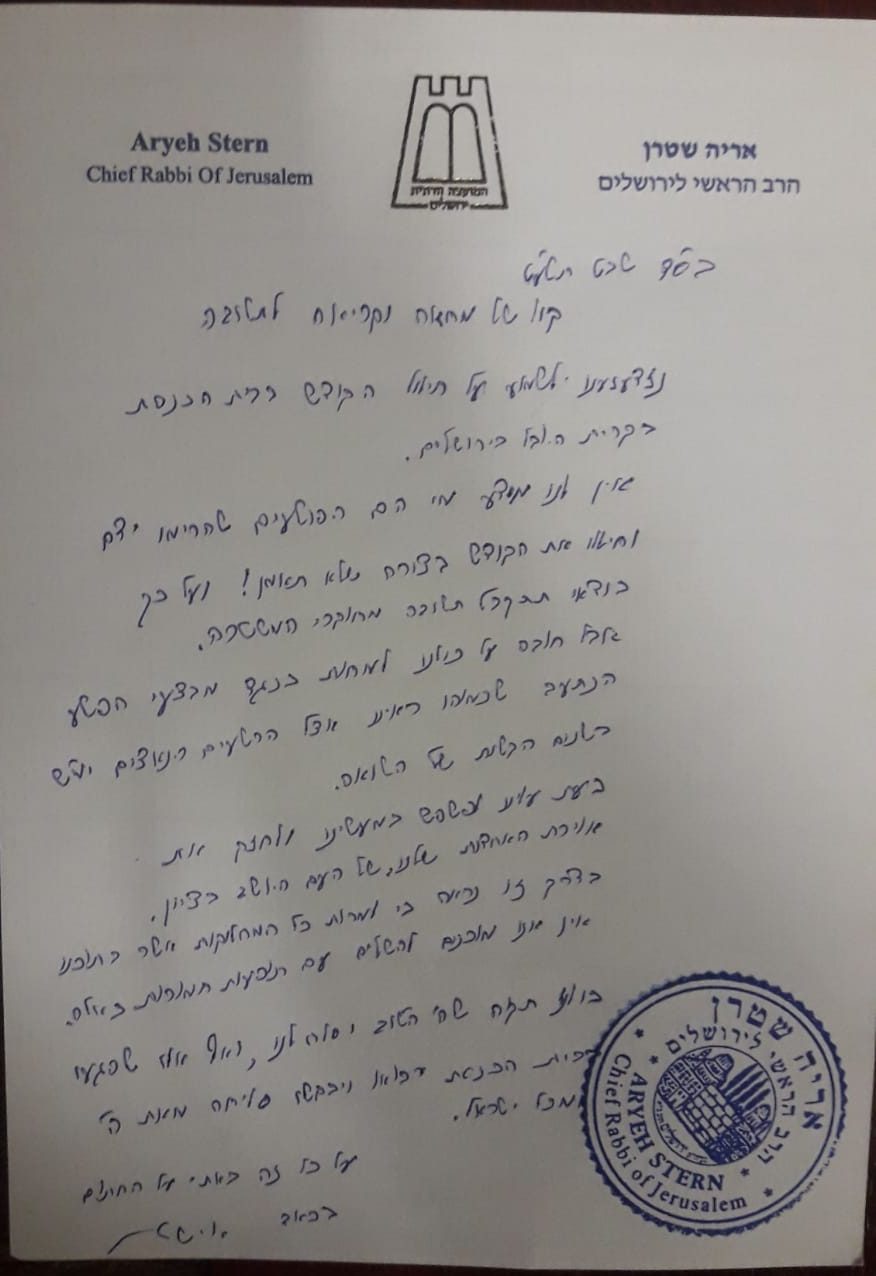 Aryeh Stern
Chief Rabbi Of Jerusalem
המועצה הדתית
ירושלים
אריה שטרן
הרב הראשי לירושלים
בס"ד שבט תשע"ט
קול של מחאה וקריאה לתשובה
נזדעזענו לשמוע על חילול הקודש בבית הכנסת
בקרית היובל בירושלים.
אין לנו מושג מי הם הפושעים שהרימו ידם
וחיללו את הקודש בצורה שלא תאומן! ועל כך
בודאי תתקבל תשובה מחוקרי המשטרה.
אבל חובה על כולנו למחות כנגד מבצעי הפשע
הנתעב שכמוהו ראינו אצל הרשעים הנאצים ימ"ש
בשנים הקשות של השואה.
כעת עלינו לפשפש במעשינו ולחזק את
אוירת האחדות שלנו, של העם היושב בציון.
בדרך זו נראה כי למרות כל המחלוקות אשר בתוכנו
אין אנו מוכנים להשלים עם תופעות חמורות כאלה.
כולנו תקוה שה' הטוב יסלח לנו, ואף אלו שפגעו
בבית הכנסת יבואו ויבקשו סליחה מאת ה'
ומכל ישראל.
על כל זה באתי על החתום
בכאב
אריה שטרן
הרב הראשי לירושלים
ARYEH STERN
Chief Rabbi of Jerusalem